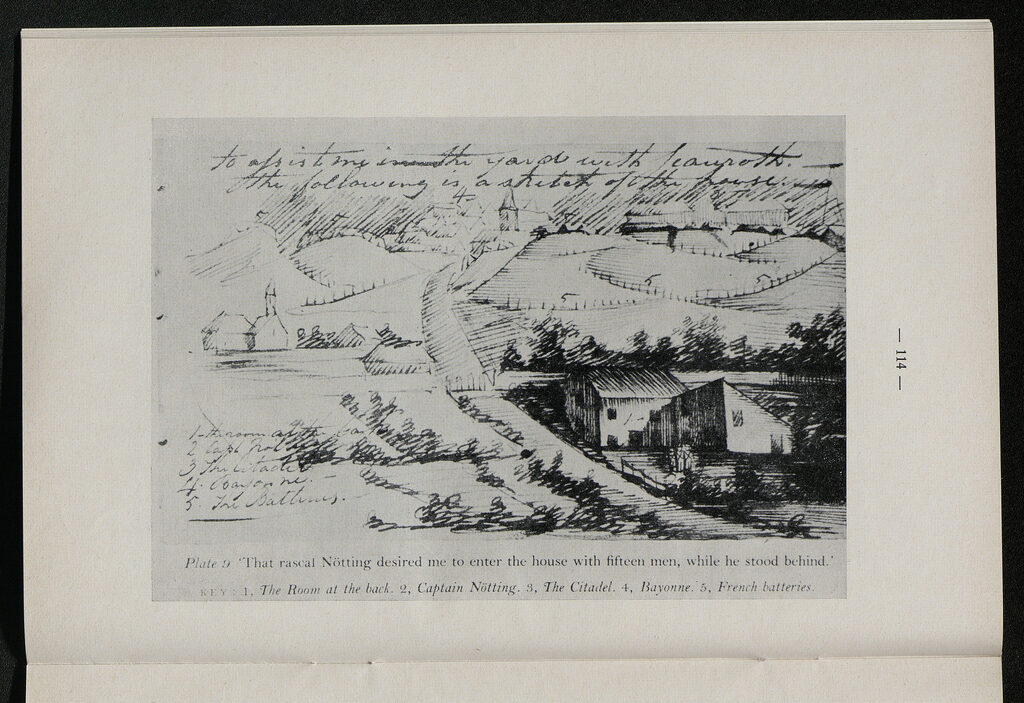 to assist me in the yard with Jeauroth.
the following is a sketch of the house
4
5
5
3
2
5
5
5
1 the room at the back
2 Capt Not
3 The Citadel
4. Bayonne.
5. The Batteries.
Plate 9 'That rascal Nötting desired me to enter the house with fifteen men, while he stood behind.'
KEY: 1, The Room at the back. 2, Captain Nötting. 3, The Citadel. 4, Bayonne. 5, French batteries.
— 114 —